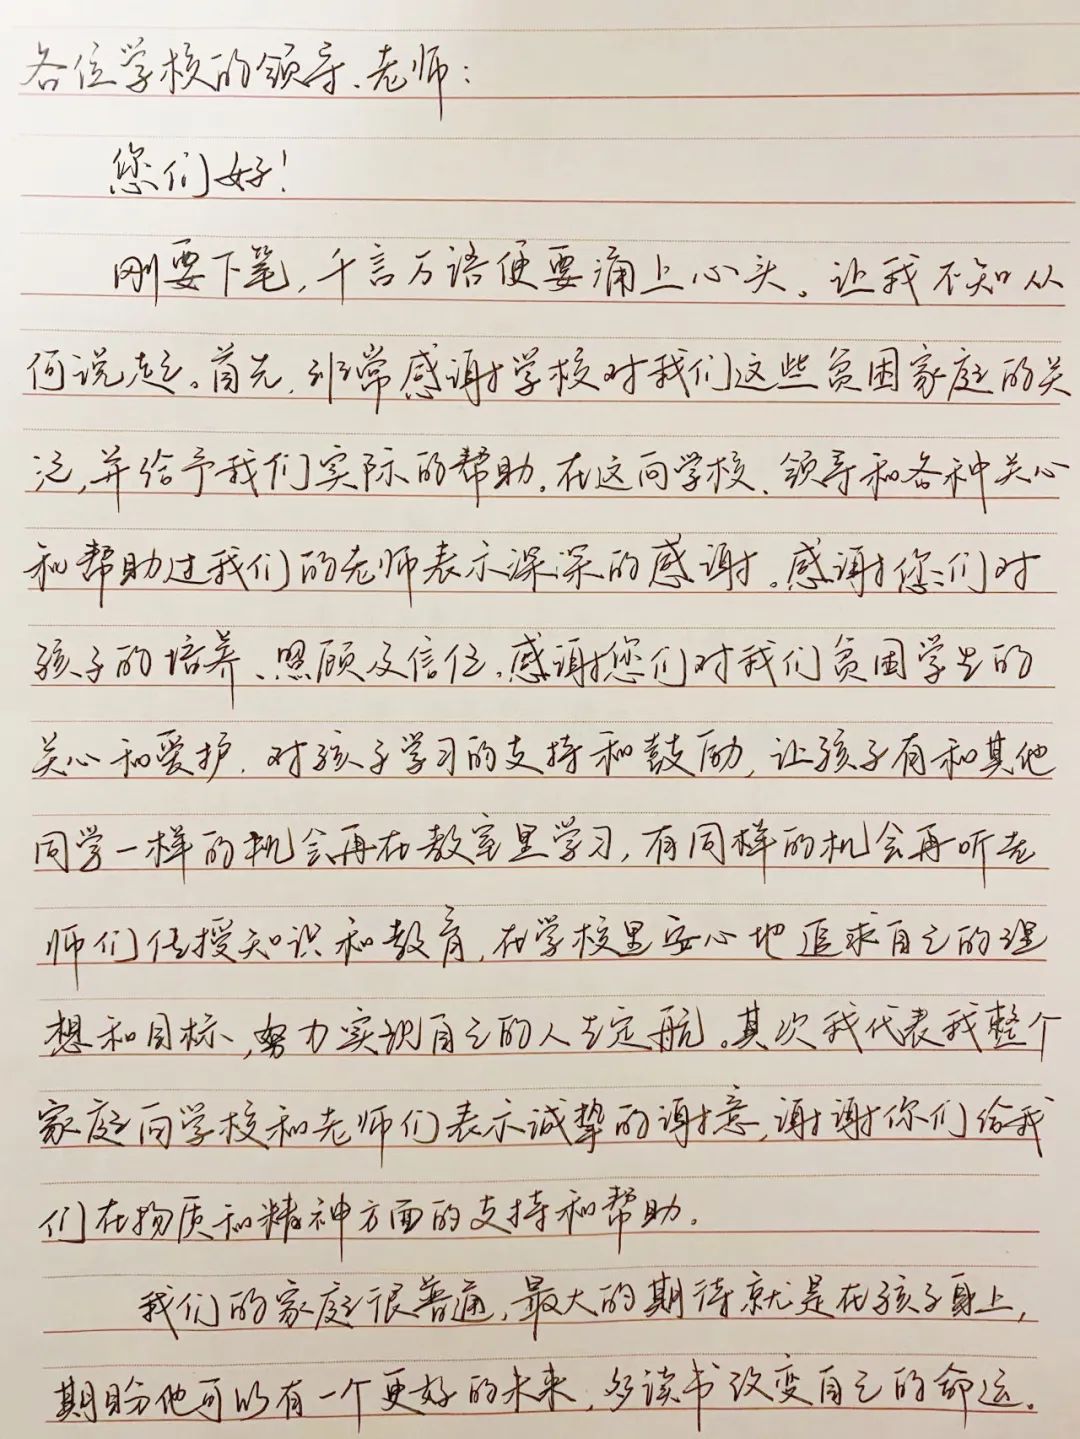 各位学校的领导、老师：
您们好！
刚要下笔，千言万语便要涌上心头。让我不知从
何说起。首先，非常感谢学校对我们这些贫困家庭的关
注，并给予我们实际的帮助。在这向学校、领导和各种关心
和帮助过我们的老师表示深深的感谢。感谢您们对
孩子的培养、照顾及信任，感谢您们对我们贫困学生的
关心和爱护，对孩子学习的支持和鼓励，让孩子有和其他
同学一样的机会再在教室里学习，有同样的机会再听老
师们传授知识和教育，在学校里安心地追求自己的理
想和目标，努力实现自己的人生定航。其次我代表我整个
家庭向学校和老师们表示诚挚的谢意，谢谢你们给我
们在物质和精神方面的支持和帮助。
我们的家庭很普通，最大的期待就是在孩子身上，
期盼他可以有一个更好的未来，多读书改变自己的命运。